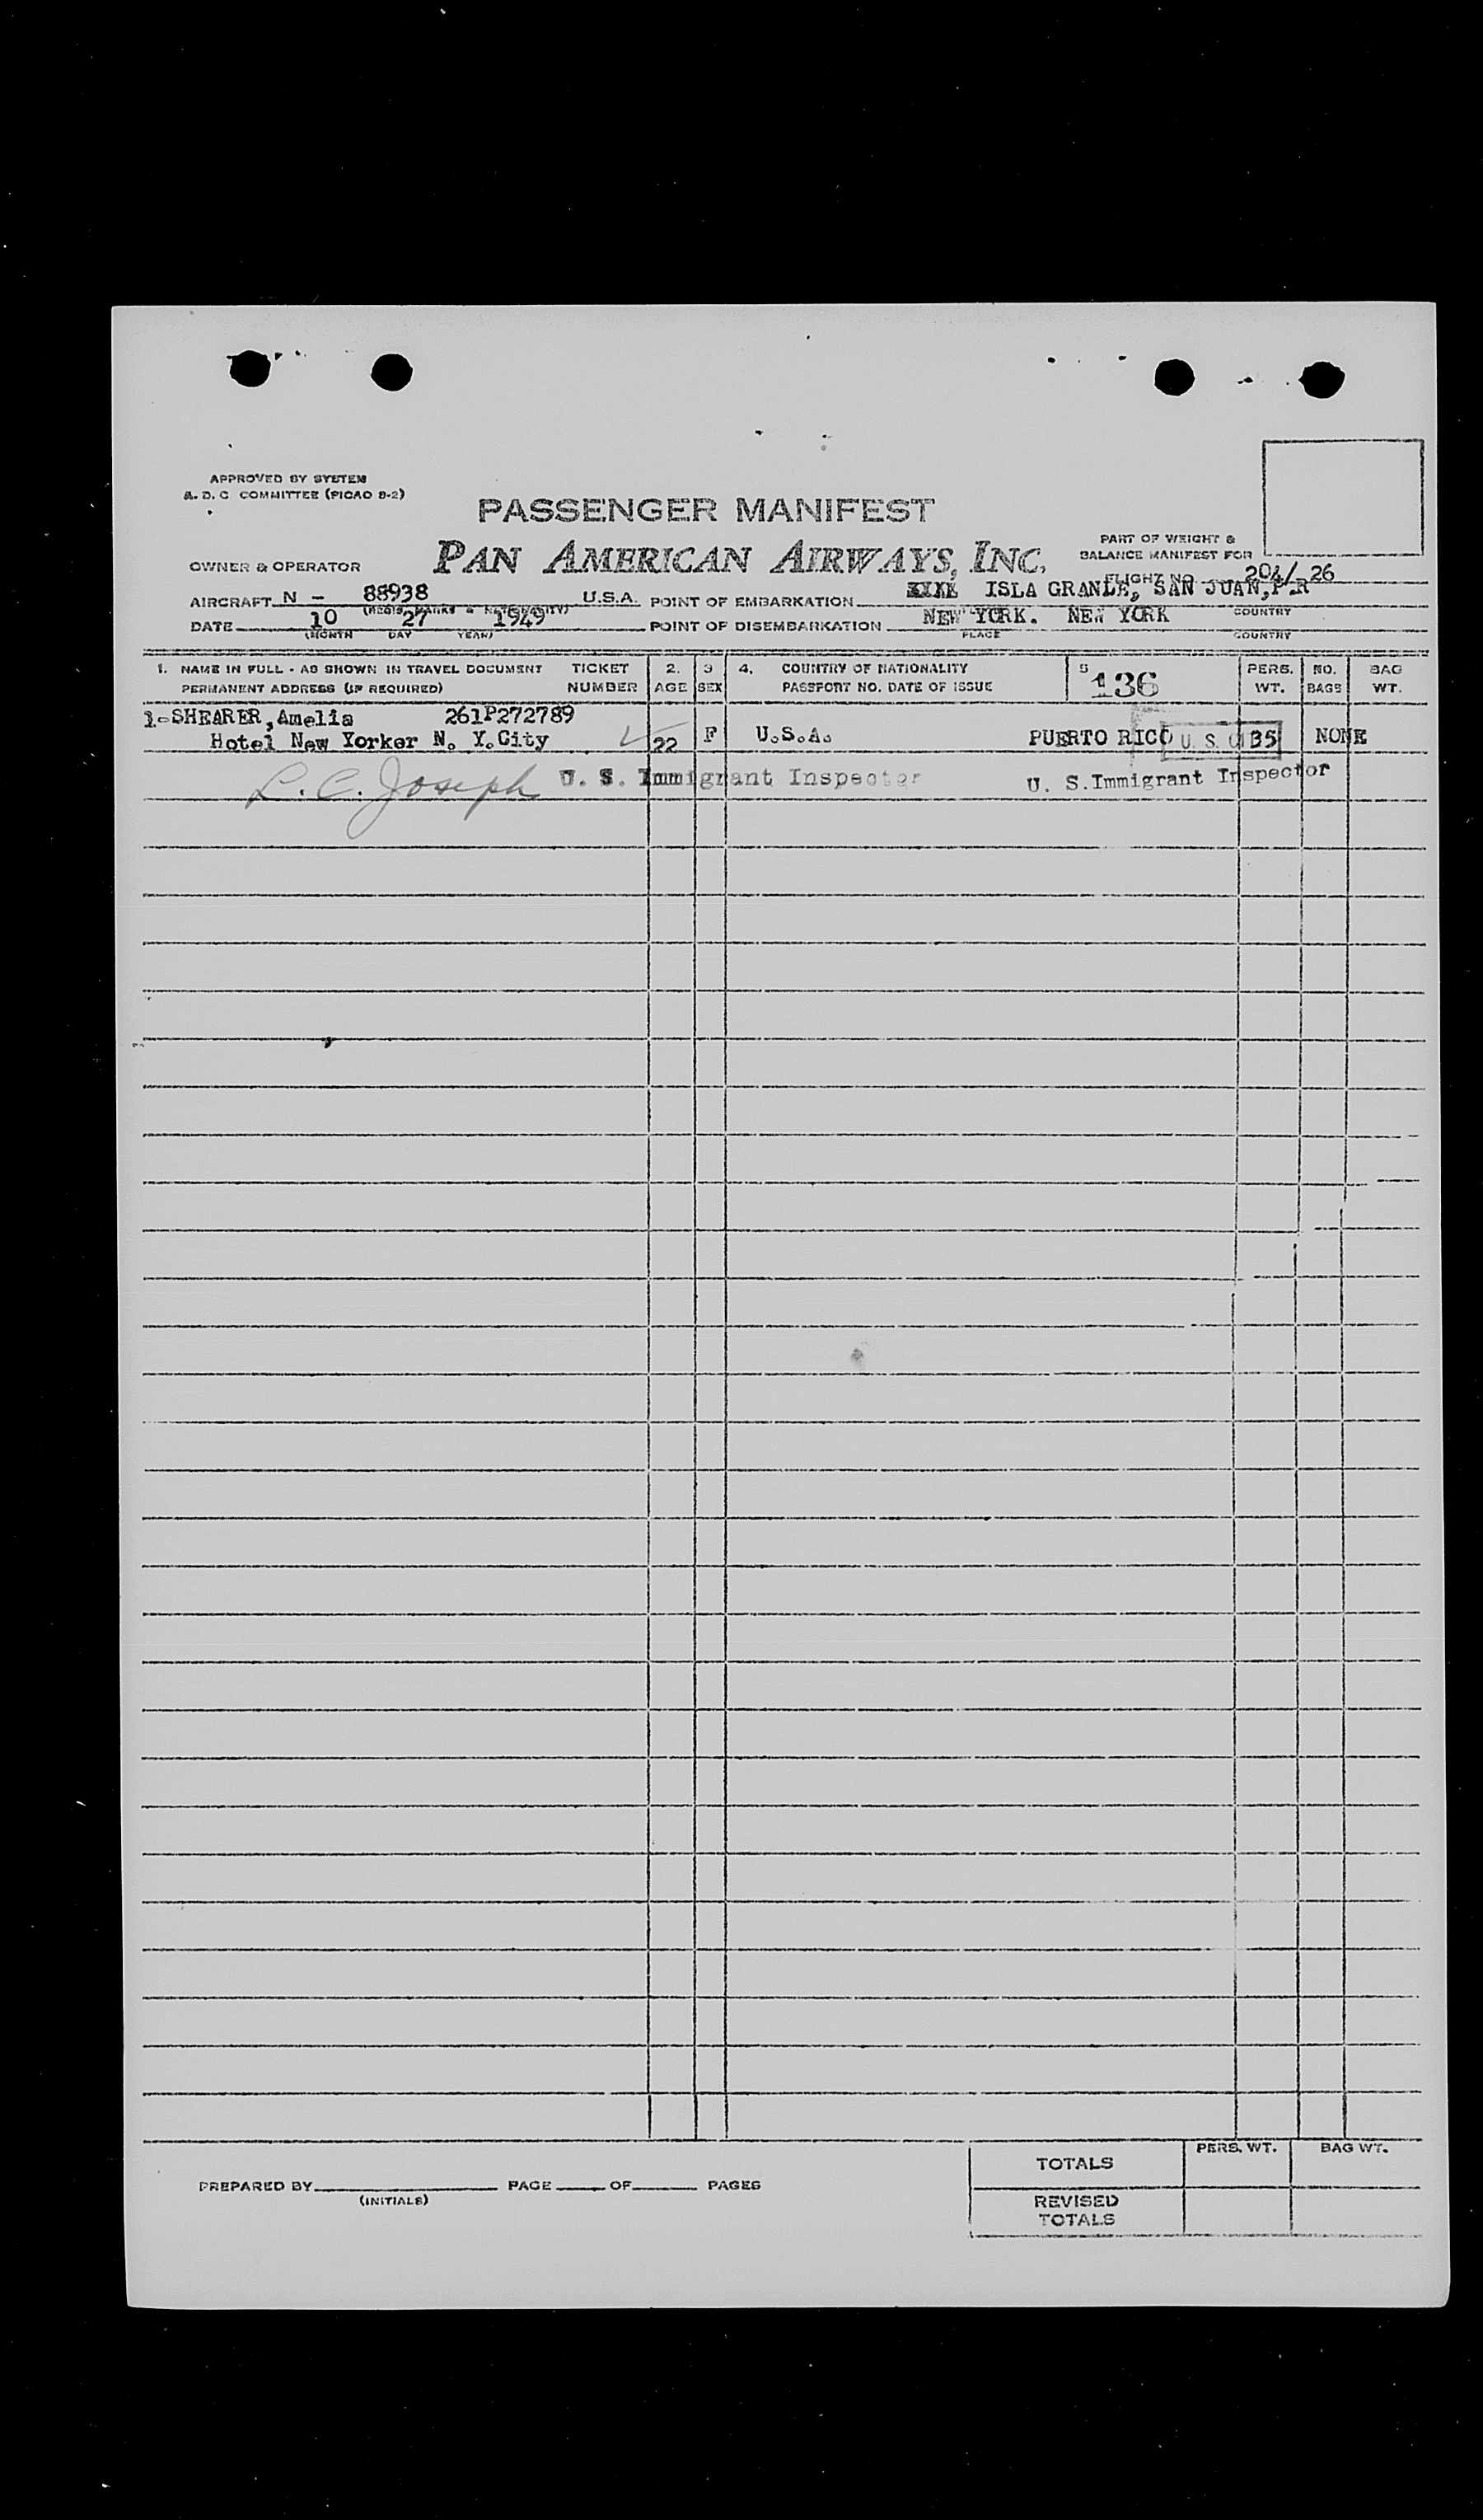 APPROVED BY SYSTEM
A. D. C COMMITTEE (PICAO 8-2)
PASSENGER MANIFEST
PART OF WEIGHT &
BALANCE MANIFEST FOR
OWNER & OPERATOR
PAN AMERICAN AIRWAYS, INC.
FLIGHT NO. 204/ 26
AIRCRAFT N - 88938 U.S.A. POINT OF EMBARKATION ISLA GRANDE, SAN JUAN, P.R
(REGIS. MARKS & NATIONALITY) COUNTRY
DATE 10 27 1949 POINT OF DISEMBARKATION NEW YORK. NEW YORK
(MONTH DAY YEAR) PLACE COUNTRY
1. NAME IN FULL - AS SHOWN IN TRAVEL DOCUMENT TICKET 2. 3 4. COUNTRY OF NATIONALITY 5 136 PERS. NO. BAG
PERMANENT ADDRESS (IF REQUIRED) NUMBER AGE SEX PASSPORT NO. DATE OF ISSUE WT. BAGS WT.
1-SHEARER,Amelia 261P272789
Hotel New Yorker N. Y.City 22 F U.S.A. PUERTO RICO U. S. C 135 NONE
L. C. Joseph U. S. Immigrant Inspector U. S.Immigrant Inspector
PERS. WT. BAG WT.
TOTALS
PREPARED BY PAGE OF PAGES
(INITIALS)
REVISED
TOTALS